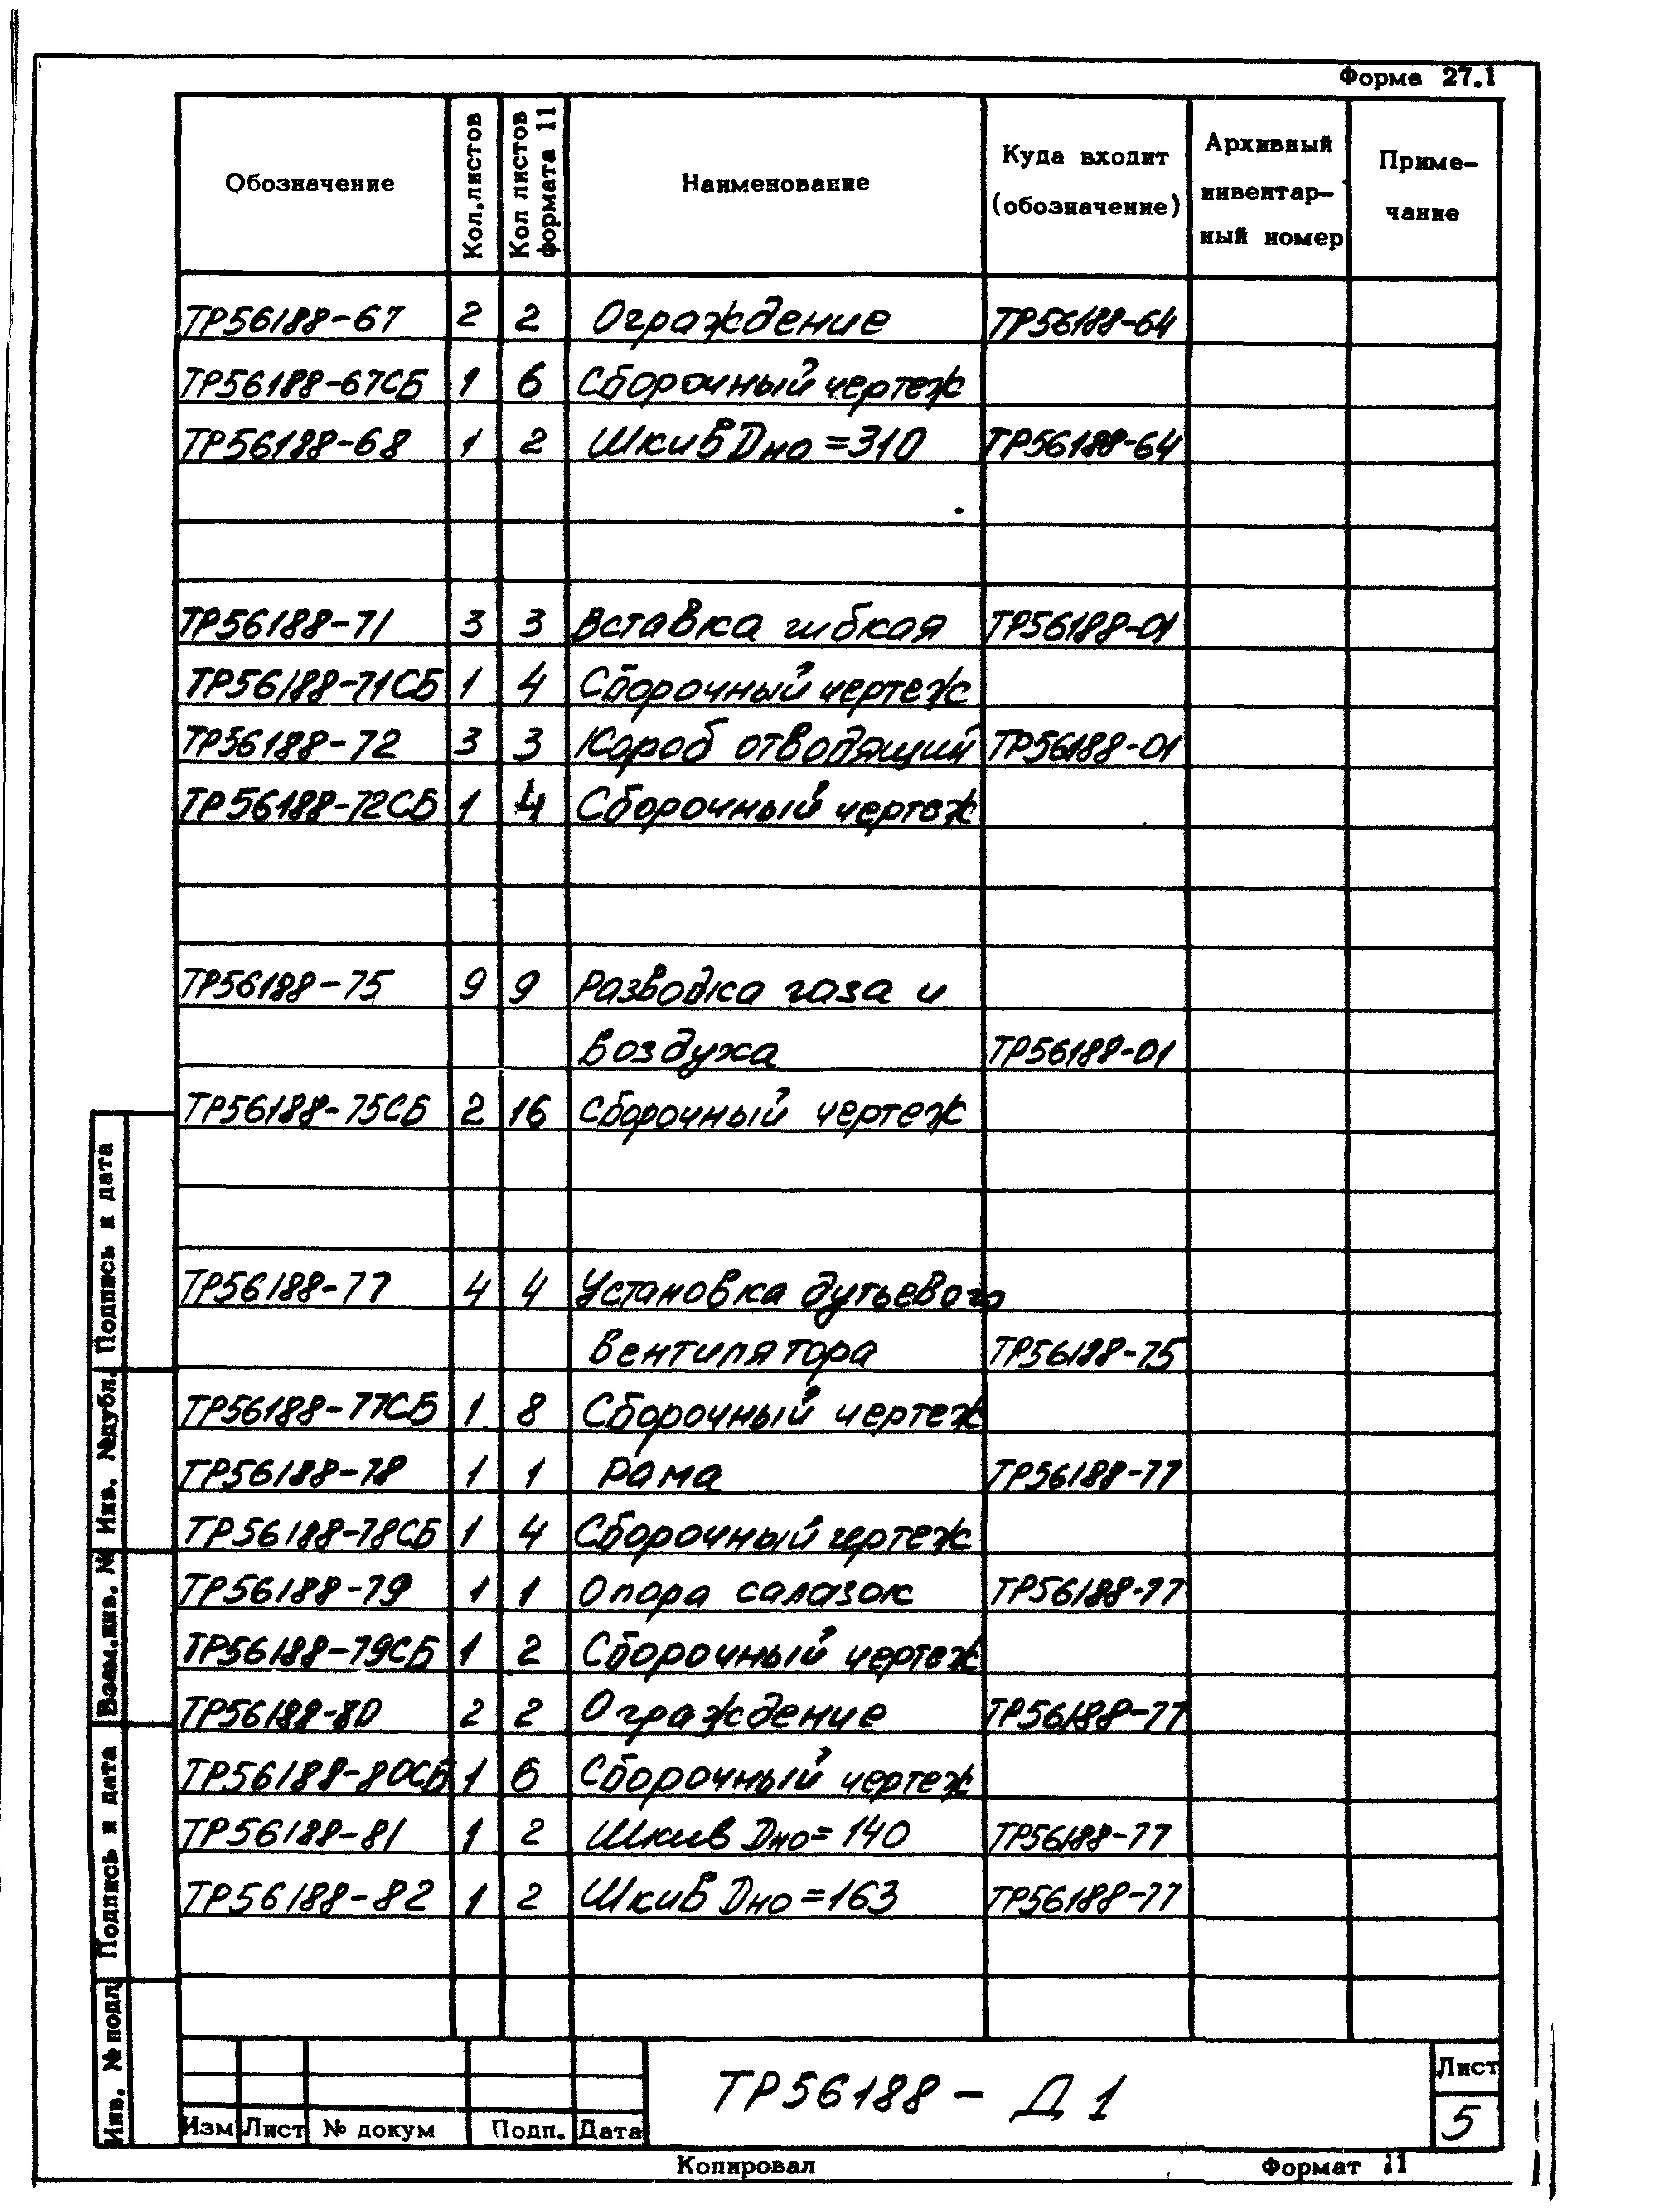 Форма 27.1
Обозначение Кол.листов Кол листов формата 11 Наименование Куда входит (обозначение) Архивный инвентар- ный номер Приме- чание
ТР56188-67 2 2 Ограждение ТР56188-64
ТР56188-67СБ 1 6 Сборочный чертеж
ТР56188-68 1 2 Шкив Дно=310 ТР56188-64
ТР56188-71 3 3 Вставка гибкая ТР56188-01
ТР56188-71СБ 1 4 Сборочный чертеж
ТР56188-72 3 3 Короб отводящий ТР56188-01
ТР56188-72СБ 1 4 Сборочный чертеж
ТР56188-75 9 9 Разводка газа и
воздуха ТР56188-01
ТР56188-75СБ 2 16 Сборочный чертеж
ТР56188-77 4 4 Установка дутьевого
вентилятора ТР56188-75
ТР56188-77СБ 1 8 Сборочный чертеж
ТР56188-78 1 1 Рама ТР56188-77
ТР56188-78СБ 1 4 Сборочный чертеж
ТР56188-79 1 1 Опора салазок ТР56188-77
ТР56188-79СБ 1 2 Сборочный чертеж
ТР56188-80 2 2 Ограждение ТР56188-77
ТР56188-80СБ 1 6 Сборочный чертеж
ТР56188-81 1 2 Шкив Дно=140 ТР56188-77
ТР56188-82 1 2 Шкив Дно=163 ТР56188-77
Инв. № подл
Подпись и дата
Взам.инв. №
Инв. №дубл.
Подпись и дата
Изм Лист № докум Подп. Дата
ТР56188- Д1
Лист
5
Копировал Формат 11